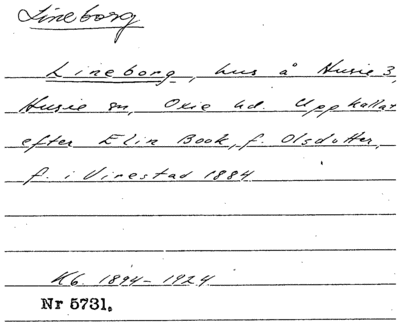 Lineborg
Lineborg, hus å Husie 3,
Husie sn, Oxie hd. Uppkallat
efter Elin Book, f. Olsdotter,
f. i Virestad 1884
Kb. 1894-1924
Nr 5731.